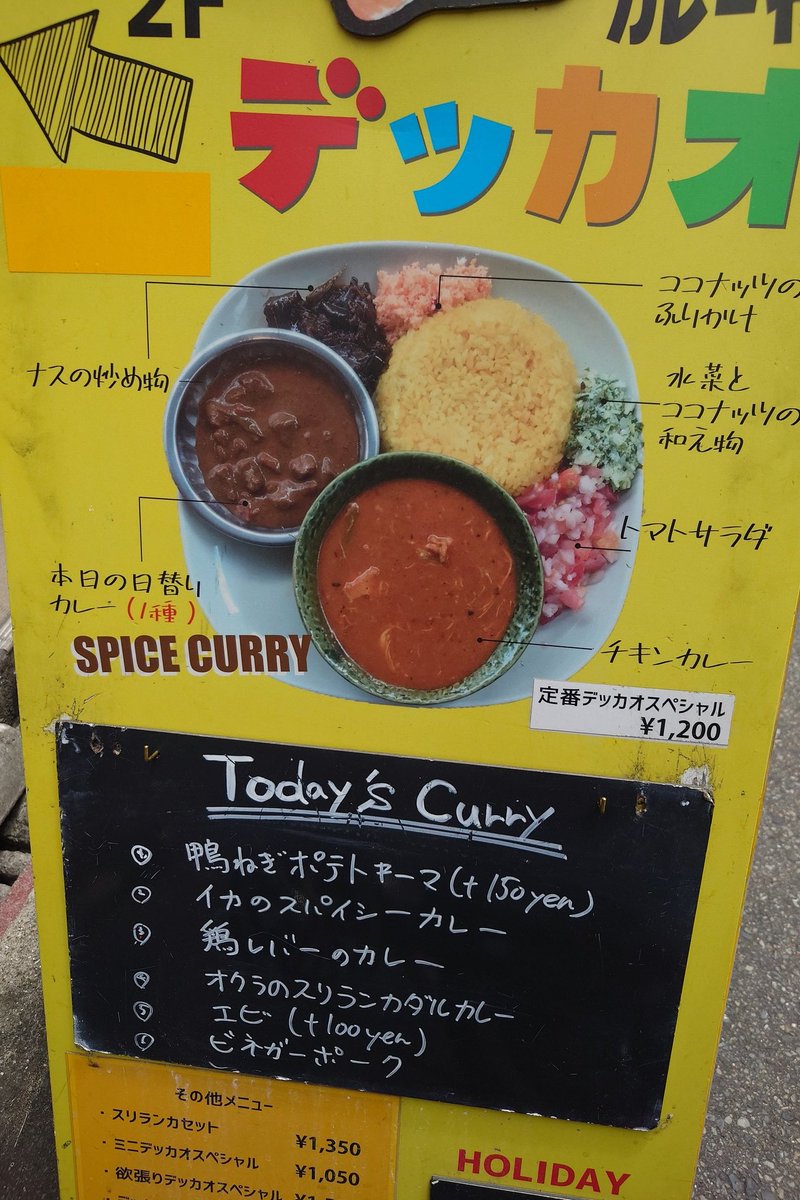 2F
デッカオ
ココナッツの
ふりかけ
ナスの炒め物
水菜と
ココナッツの
和え物
トマトサラダ
本日の日替り
カレー(1種)
チキンカレー
SPICE CURRY
定番デッカオスペシャル
¥1,200
Today's Curry
① 鴨ねぎポテトキーマ(+150yen)
② イカのスパイシーカレー
③ 鶏レバーのカレー
④ オクラのスリランカダルカレー
⑤ エビ(+100yen)
⑥ ビネガーポーク
その他メニュー
・スリランカセット ¥1,350
・ミニデッカオスペシャル ¥1,050
・欲張りデッカオスペシャル
HOLIDAY